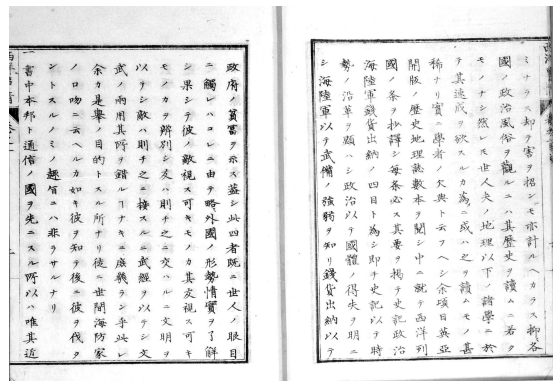 ミナラス却テ害ヲ招ンモ亦計ルヘカラス抑各
國ノ政治風俗ヲ觀ルニハ其歴史ヲ讀ムニ若ク
モノナシ然レモ世人夫ノ地理以下ノ諸學ニ於
テ其速成ヲ欲スルカ為ニ或ハ之ヲ讀ムモノ甚
稀ナリ實ニ學者ノ欠典ト云フヘシ余頃日英亞
開版ノ歴史地理誌數本ヲ閲シ中ニ就テ西洋列
國ノ条ヲ抄譯シ毎条必ス其要ヲ掲テ史記政治
海陸軍錢貨出納ノ四目ト為シ即チ史記以テ時
勢ノ沿革ヲ顯ハシ政治以テ國體ノ得失ヲ明ニ
シ海陸軍以テ武備ノ強弱ヲ知リ錢貨出納以テ
政府ノ貧富ヲ示ス蓋シ此四者既ニ世人ノ眼目
ニ觸レハコレニ由テ略外國ノ形勢情實ヲ了解
シ果シテ彼ノ敵視ス可キモノカ其友視ス可キ
モノカヲ辨別シ友ハ則チ之ニ交ハルニ文明ヲ
以テシ敵ハ則チ之ニ接スルニ武經ヲ以テシ文
武ノ兩用其所ヲ錯ルヿナキニ庶幾ランカ乎此レ
余カ是擧ノ目的トスル所ナリ徒ニ世間海防家
ノ口吻ニ云ヘルカ如キ彼ヲ知テ後ニ彼ヲ伐タ
ントスルノミノ趣旨ニハ非ラサルナリ
一書中本邦ト通信ノ國ヲ先ニスル所以ハ唯其近